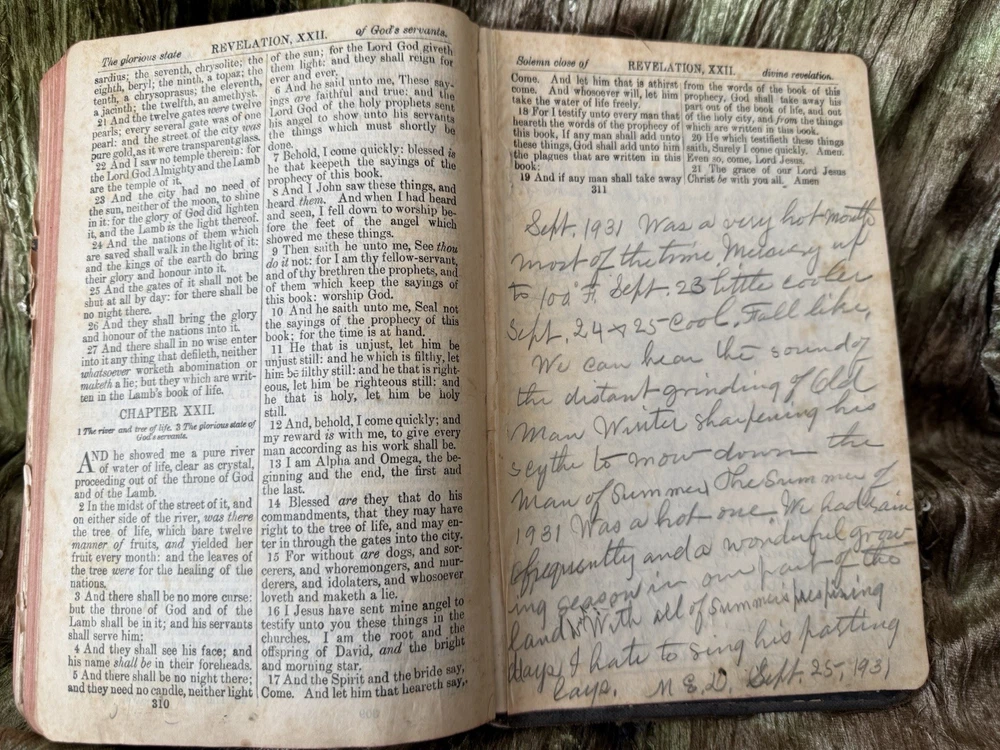 The glorious state
REVELATION, XXII.
of God's servants.
sardius; the seventh, chrysolite; the
eighth, beryl; the ninth, a topaz; the
tenth, a chrysoprasus; the eleventh,
a jacinth; the twelfth, an amethyst.
21 And the twelve gates were twelve
pearls; every several gate was of one
pearl: and the street of the city was
pure gold, as it were transparent glass.
22 And I saw no temple therein: for
the Lord God Almighty and the Lamb
are the temple of it.
23 And the city had no need of
the sun, neither of the moon, to shine
in it: for the glory of God did lighten
it, and the Lamb is the light thereof.
24 And the nations of them which
are saved shall walk in the light of it:
and the kings of the earth do bring
their glory and honour into it.
25 And the gates of it shall not be
shut at all by day: for there shall be
no night there.
26 And they shall bring the glory
and honour of the nations into it.
27 And there shall in no wise enter
into it any thing that defileth, neither
whatsoever worketh abomination or
maketh a lie; but they which are writ-
ten in the Lamb's book of life.
CHAPTER XXII.
1 The river and tree of life. 3 The glorious state of
God's servants.
AND he showed me a pure river
of water of life, clear as crystal,
proceeding out of the throne of God
and of the Lamb.
2 In the midst of the street of it, and
on either side of the river, was there
the tree of life, which bare twelve
manner of fruits, and yielded her
fruit every month: and the leaves of
the tree were for the healing of the
nations.
3 And there shall be no more curse:
but the throne of God and of the
Lamb shall be in it; and his servants
shall serve him:
4 And they shall see his face; and
his name shall be in their foreheads.
5 And there shall be no night there;
and they need no candle, neither light
310
of the sun; for the Lord God giveth
them light: and they shall reign for
ever and ever.
6 And he said unto me, These say-
ings are faithful and true: and the
Lord God of the holy prophets sent
his angel to show unto his servants
the things which must shortly be
done.
7 Behold, I come quickly: blessed is
he that keepeth the sayings of the
prophecy of this book.
8 And I John saw these things, and
heard them. And when I had heard
and seen, I fell down to worship be-
fore the feet of the angel which
showed me these things.
9 Then saith he unto me, See thou
do it not: for I am thy fellow-servant,
and of thy brethren the prophets, and
of them which keep the sayings of
this book: worship God.
10 And he saith unto me, Seal not
the sayings of the prophecy of this
book; for the time is at hand.
11 He that is unjust, let him be
unjust still: and he which is filthy, let
him be filthy still: and he that is right-
eous, let him be righteous still: and
he that is holy, let him be holy
still.
12 And, behold, I come quickly; and
my reward is with me, to give every
man according as his work shall be.
13 I am Alpha and Omega, the be-
ginning and the end, the first and
the last.
14 Blessed are they that do his
commandments, that they may have
right to the tree of life, and may en-
ter in through the gates into the city.
15 For without are dogs, and sor-
cerers, and whoremongers, and mur-
derers, and idolaters, and whosoever
loveth and maketh a lie.
16 I Jesus have sent mine angel to
testify unto you these things in the
churches. I am the root and the
offspring of David, and the bright
and morning star.
17 And the Spirit and the bride say,
Come. And let him that heareth say,
Solemn close of
REVELATION, XXII.
divine revelation.
Come. And let him that is athirst
come. And whosoever will, let him
take the water of life freely.
18 For I testify unto every man that
heareth the words of the prophecy of
this book, If any man shall add unto
these things, God shall add unto him
the plagues that are written in this
book:
19 And if any man shall take away
from the words of the book of this
prophecy, God shall take away his
part out of the book of life, and out
of the holy city, and from the things
which are written in this book.
20 He which testifieth these things
saith, Surely I come quickly. Amen.
Even so, come, Lord Jesus.
21 The grace of our Lord Jesus
Christ be with you all. Amen
311
Sept. 1931 Was a very hot month
most of the time Mercury up
to 100° F. Sept. 23 little cooler
Sept. 24 & 25 Cool. Fall like,
We can hear the sound of
the distant grinding of Old
Man Winter sharpening his
scythe to mow down the
Man of Summer, The Summer of
1931 Was a hot one We had rain
frequently and a wonderful grow
ing season in our part of the
land With all of Summers prespiring
days I hate to sing his parting
Lays. M E. D. Sept. 25, 1931